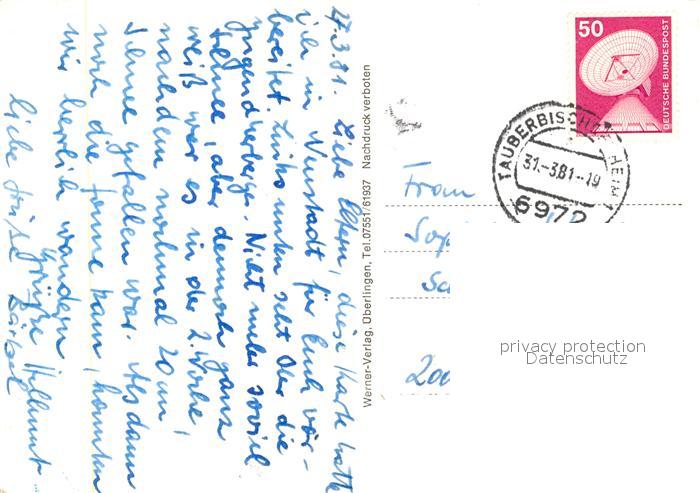 27.3.81. Liebe Eltern, diese Karte hatte
ich in Neustadt für Euch vor-
bereitet. Links unten seht Ihr die
Jugendherberge. Nicht mehr soviel
Schnee, aber dennoch ganz
weiß war es in der 2. Woche,
nachdem nochmal 20 cm
Schnee gefallen war. Als dann
noch die Sonne kam, konnten
wir herrlich wandern
Liebe Grüße Hellmut
Werner-Verlag, Oberlingen, Tel. 07551/61937 Nachdruck verboten
50
DEUTSCHE BUNDESPOST
TAUBERBISCHOFSHEIM
31.-3.81.-19
6972
Frau
Sop
Sc
200
privacy protection
Datenschutz